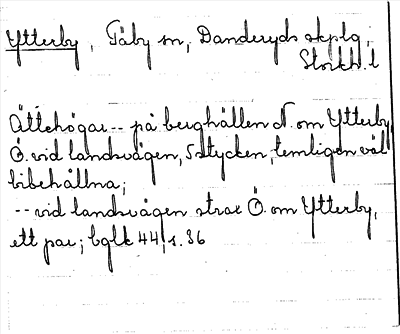 Ytterby, Täby sn, Danderyds skplg,
Stockh. l
Ättehögar -- på berghällen N. om Ytterby
Ö. vid landsvägen, 5 stycken, temligen väl
bibehållna;
-- vid landsvägen strax Ö. om Ytterby,
ett par; bglk 44, s. 36